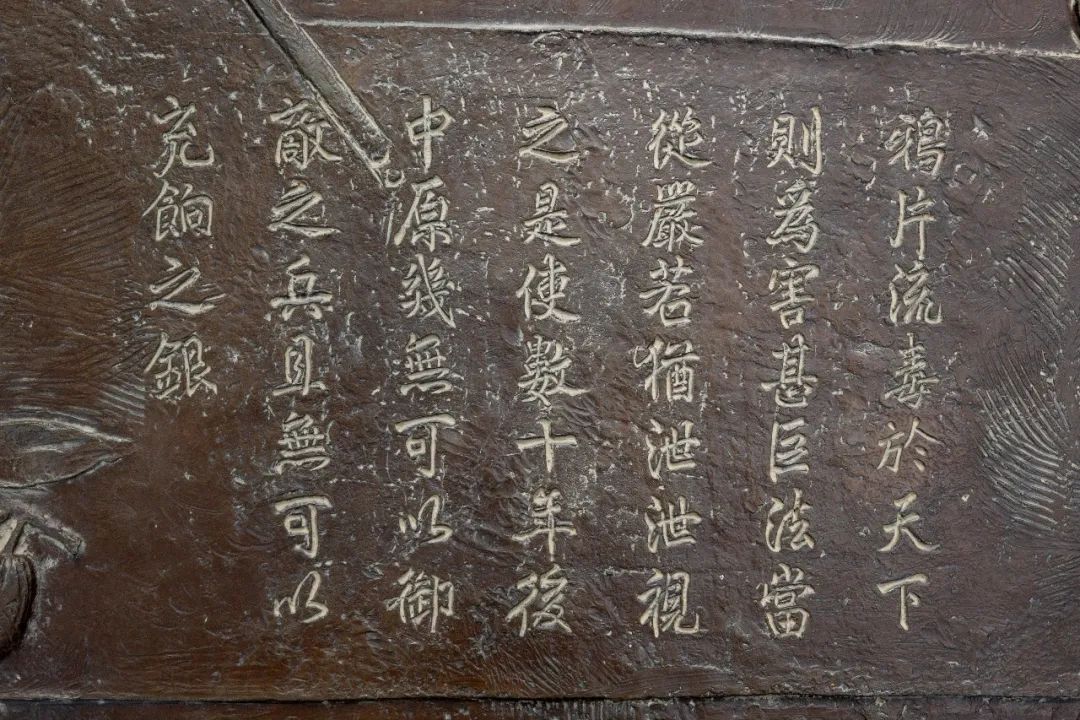 鴉片流毒於天下
則為害甚巨法當
從嚴若猶泄泄視
之是使數十年後
中原幾無可以御
敵之兵且無可以
充餉之銀